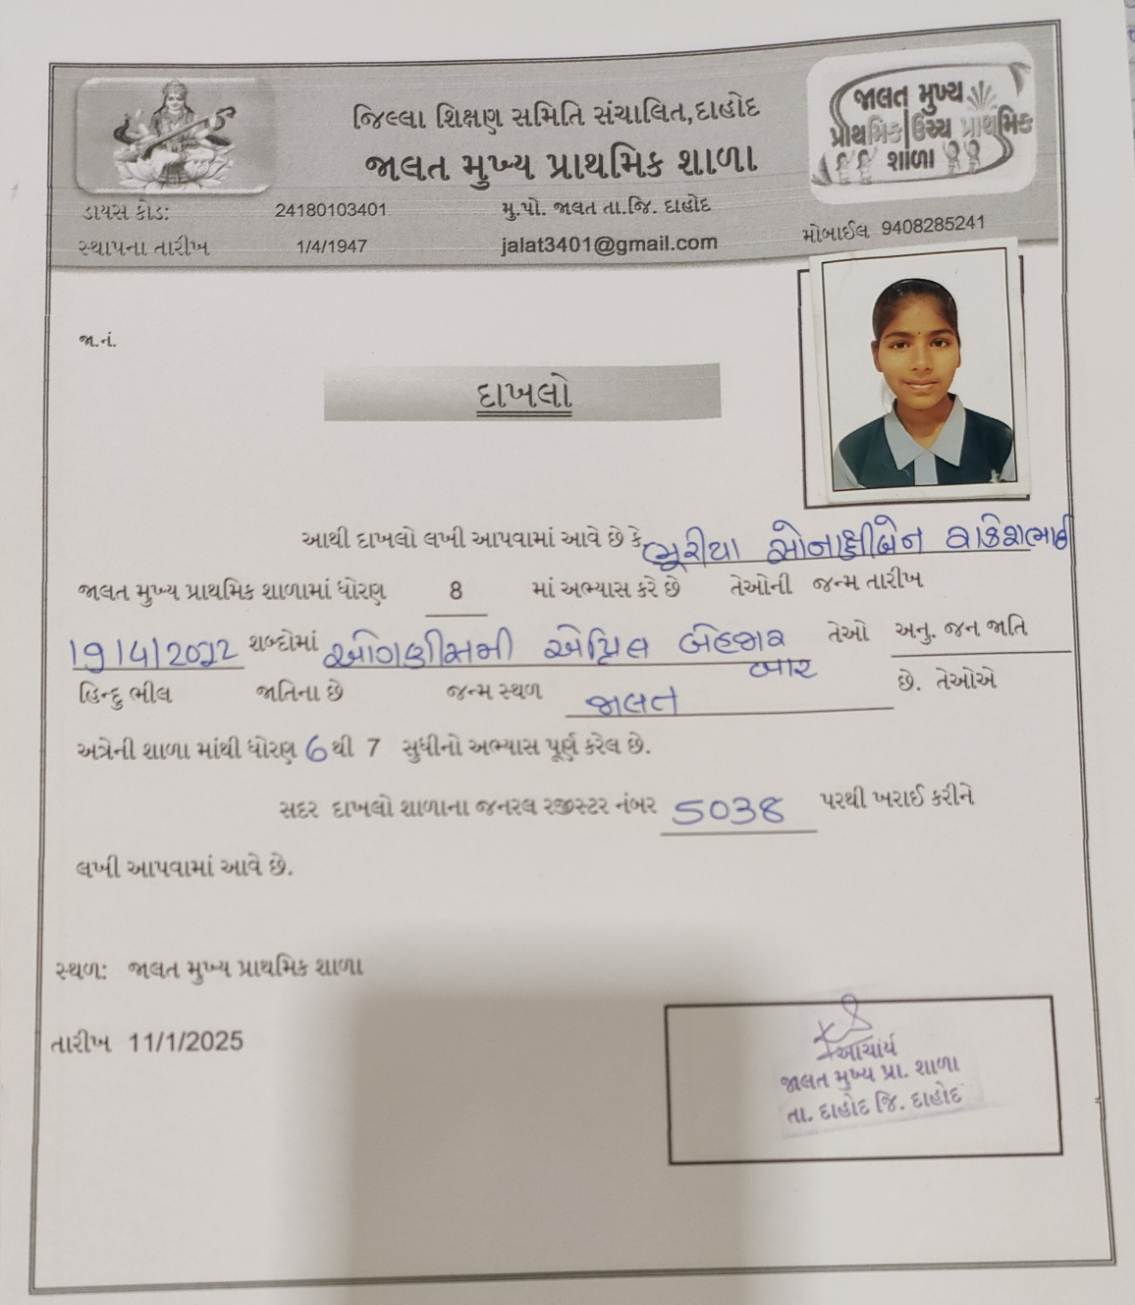 જિલ્લા શિક્ષણ સમિતિ સંચાલિત,દાહોદ
જાલત મુખ્ય પ્રાથમિક શાળા
જાલત મુખ્ય
પ્રાથમિક|ઉચ્ચ પ્રાથમિક
શાળા
ડાયસ કોડ: 24180103401 મુ.પો. જાલત તા.જિ. દાહોદ
સ્થાપના તારીખ 1/4/1947 jalat3401@gmail.com મોબાઈલ 9408285241
જા.નં.
દાખલો
આથી દાખલો લખી આપવામાં આવે છે કે ભૂરીયા સોનાક્ષીબેન રાકેશભાઈ
જાલત મુખ્ય પ્રાથમિક શાળામાં ધોરણ 8 માં અભ્યાસ કરે છે તેઓની જન્મ તારીખ
19/4/2022 શબ્દોમાં ઓગણીસમી એપ્રિલ બેહજાર બાર તેઓ અનુ. જન જાતિ
હિન્દુ ભીલ જાતિના છે જન્મ સ્થળ જાલત છે. તેઓએ
અત્રેની શાળા માંથી ધોરણ 6 થી 7 સુધીનો અભ્યાસ પૂર્ણ કરેલ છે.
સદર દાખલો શાળાના જનરલ રજીસ્ટર નંબર 5038 પરથી ખરાઈ કરીને
લખી આપવામાં આવે છે.
સ્થળ: જાલત મુખ્ય પ્રાથમિક શાળા
તારીખ 11/1/2025
આચાર્ય
જાલત મુખ્ય પ્રા. શાળા
તા. દાહોદ જિ. દાહોદ